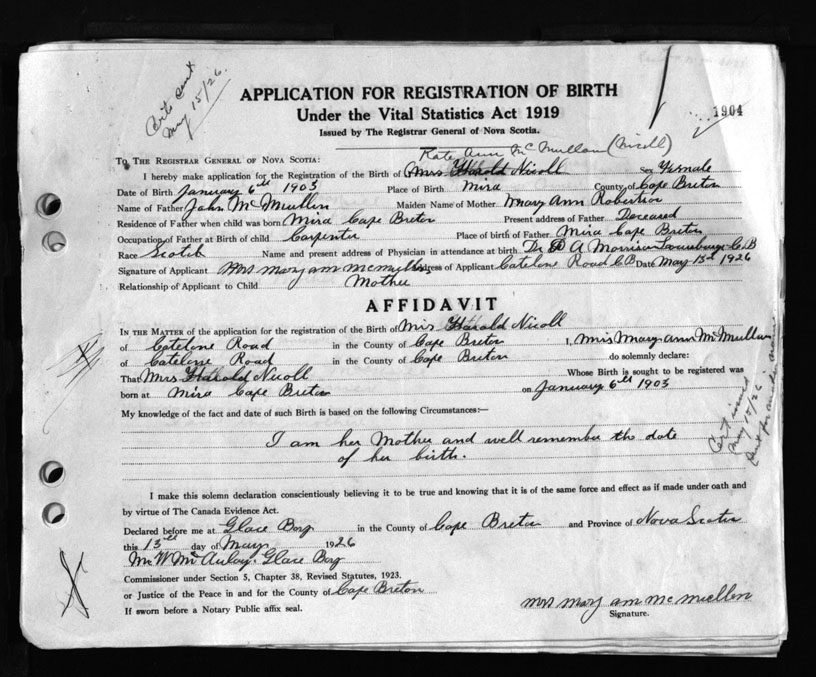 Certs sent
May 15/26.
APPLICATION FOR REGISTRATION OF BIRTH
Under the Vital Statistics Act 1919
Issued by The Registrar General of Nova Scotia.
1904
Kate Ann McMullan (Nicoll)
To The Registrar General of Nova Scotia:
I hereby make application for the Registration of the Birth of Mrs Harold Nicoll Sex Female
Date of Birth January 6th 1903 Place of Birth Mira County of Cape Breton
Name of Father John McMullin Maiden Name of Mother Mary Ann Robertson
Residence of Father when child was born Mira Cape Breton Present address of Father Deceased
Occupation of Father at Birth of child Carpenter Place of birth of Father Mira Cape Breton
Race Scotch Name and present address of Physician in attendance at birth Dr D A Morrison Louisburg C.B
Signature of Applicant Mrs Mary ann mcmullen Address of Applicant Catelone Road C B Date May 13th 1926
Relationship of Applicant to Child Mother
AFFIDAVIT
In the Matter of the application for the registration of the Birth of Mrs Harold Nicoll
of Catelone Road in the County of Cape Breton I, Mrs Mary ann McMullin
of Catelone Road in the County of Cape Breton do solemnly declare:
That Mrs Harold Nicoll Whose Birth is sought to be registered was
born at Mira Cape Breton on January 6th 1903
My knowledge of the fact and date of such Birth is based on the following Circumstances:—
I am her Mother and well remember the date
of her birth.
Cert issued
May 15/26
I make this solemn declaration conscientiously believing it to be true and knowing that it is of the same force and effect as if made under oath and
by virtue of The Canada Evidence Act.
Declared before me at Glace Bay in the County of Cape Breton and Province of Nova Scotia
this 13th day of May 1926
McAulay Glace Bay
Commissioner under Section 5, Chapter 38, Revised Statutes, 1923.
or Justice of the Peace in and for the County of Cape Breton
If sworn before a Notary Public affix seal.
Mrs Mary ann mc mullen
Signature.